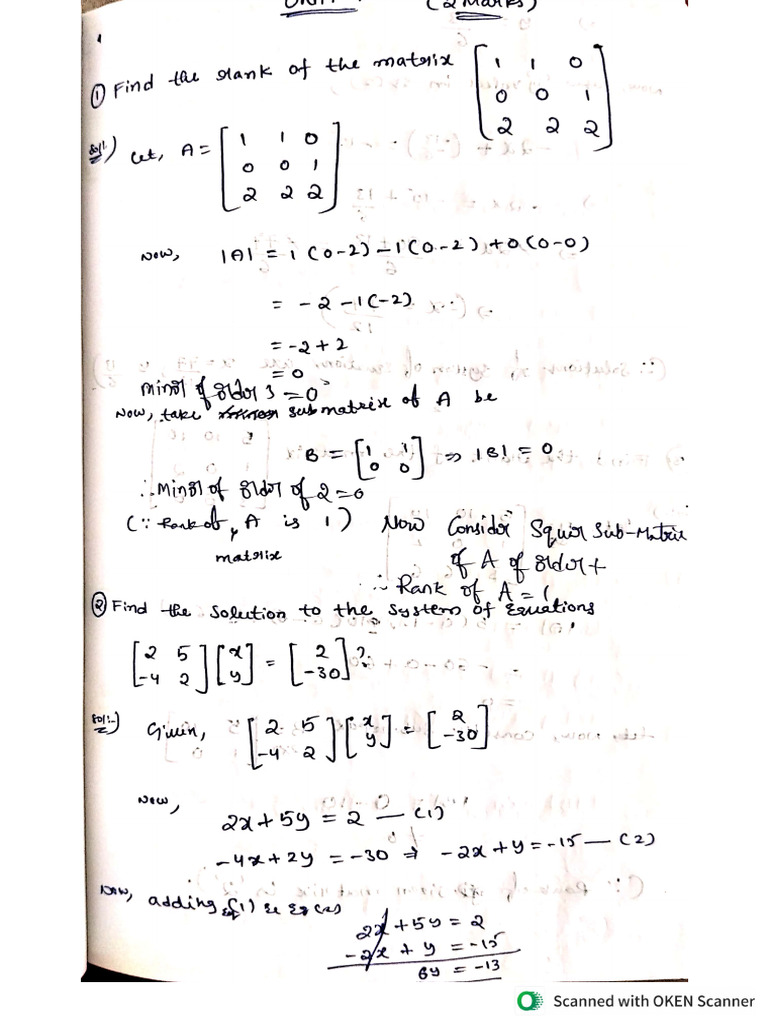 (2 Marks)
① Find the rank of the matrix [1 1 0
0 0 1
2 2 2]
Sol:) Let, A = [1 1 0
0 0 1
2 2 2]
Now, |A| = 1(0-2) - 1(0-2) + 0(0-0)
= -2 - 1(-2)
= -2 + 2
= 0
Minor of order 3 = 0
Now, take sub matrix of A be
B = [1 1
0 0] ⇒ |B| = 0
∴ Minor of order of 2 = 0
(∵ Rank of matrix A is 1) Now Consider Squar Sub-Matrix
of A of order
∴ Rank of A = 1
② Find the solution to the system of Equations
[2 5
-4 2] [x
y] = [2
-30] ?
Sol:-) Given, [2 5
-4 2] [x
y] = [2
-30]
Now,
2x + 5y = 2 — (1)
-4x + 2y = -30 ⇒ -2x + y = -15 — (2)
Now, adding Eq(1) & Eq(2)
2x + 5y = 2
-2x + y = -15
6y = -13
Scanned with OKEN Scanner